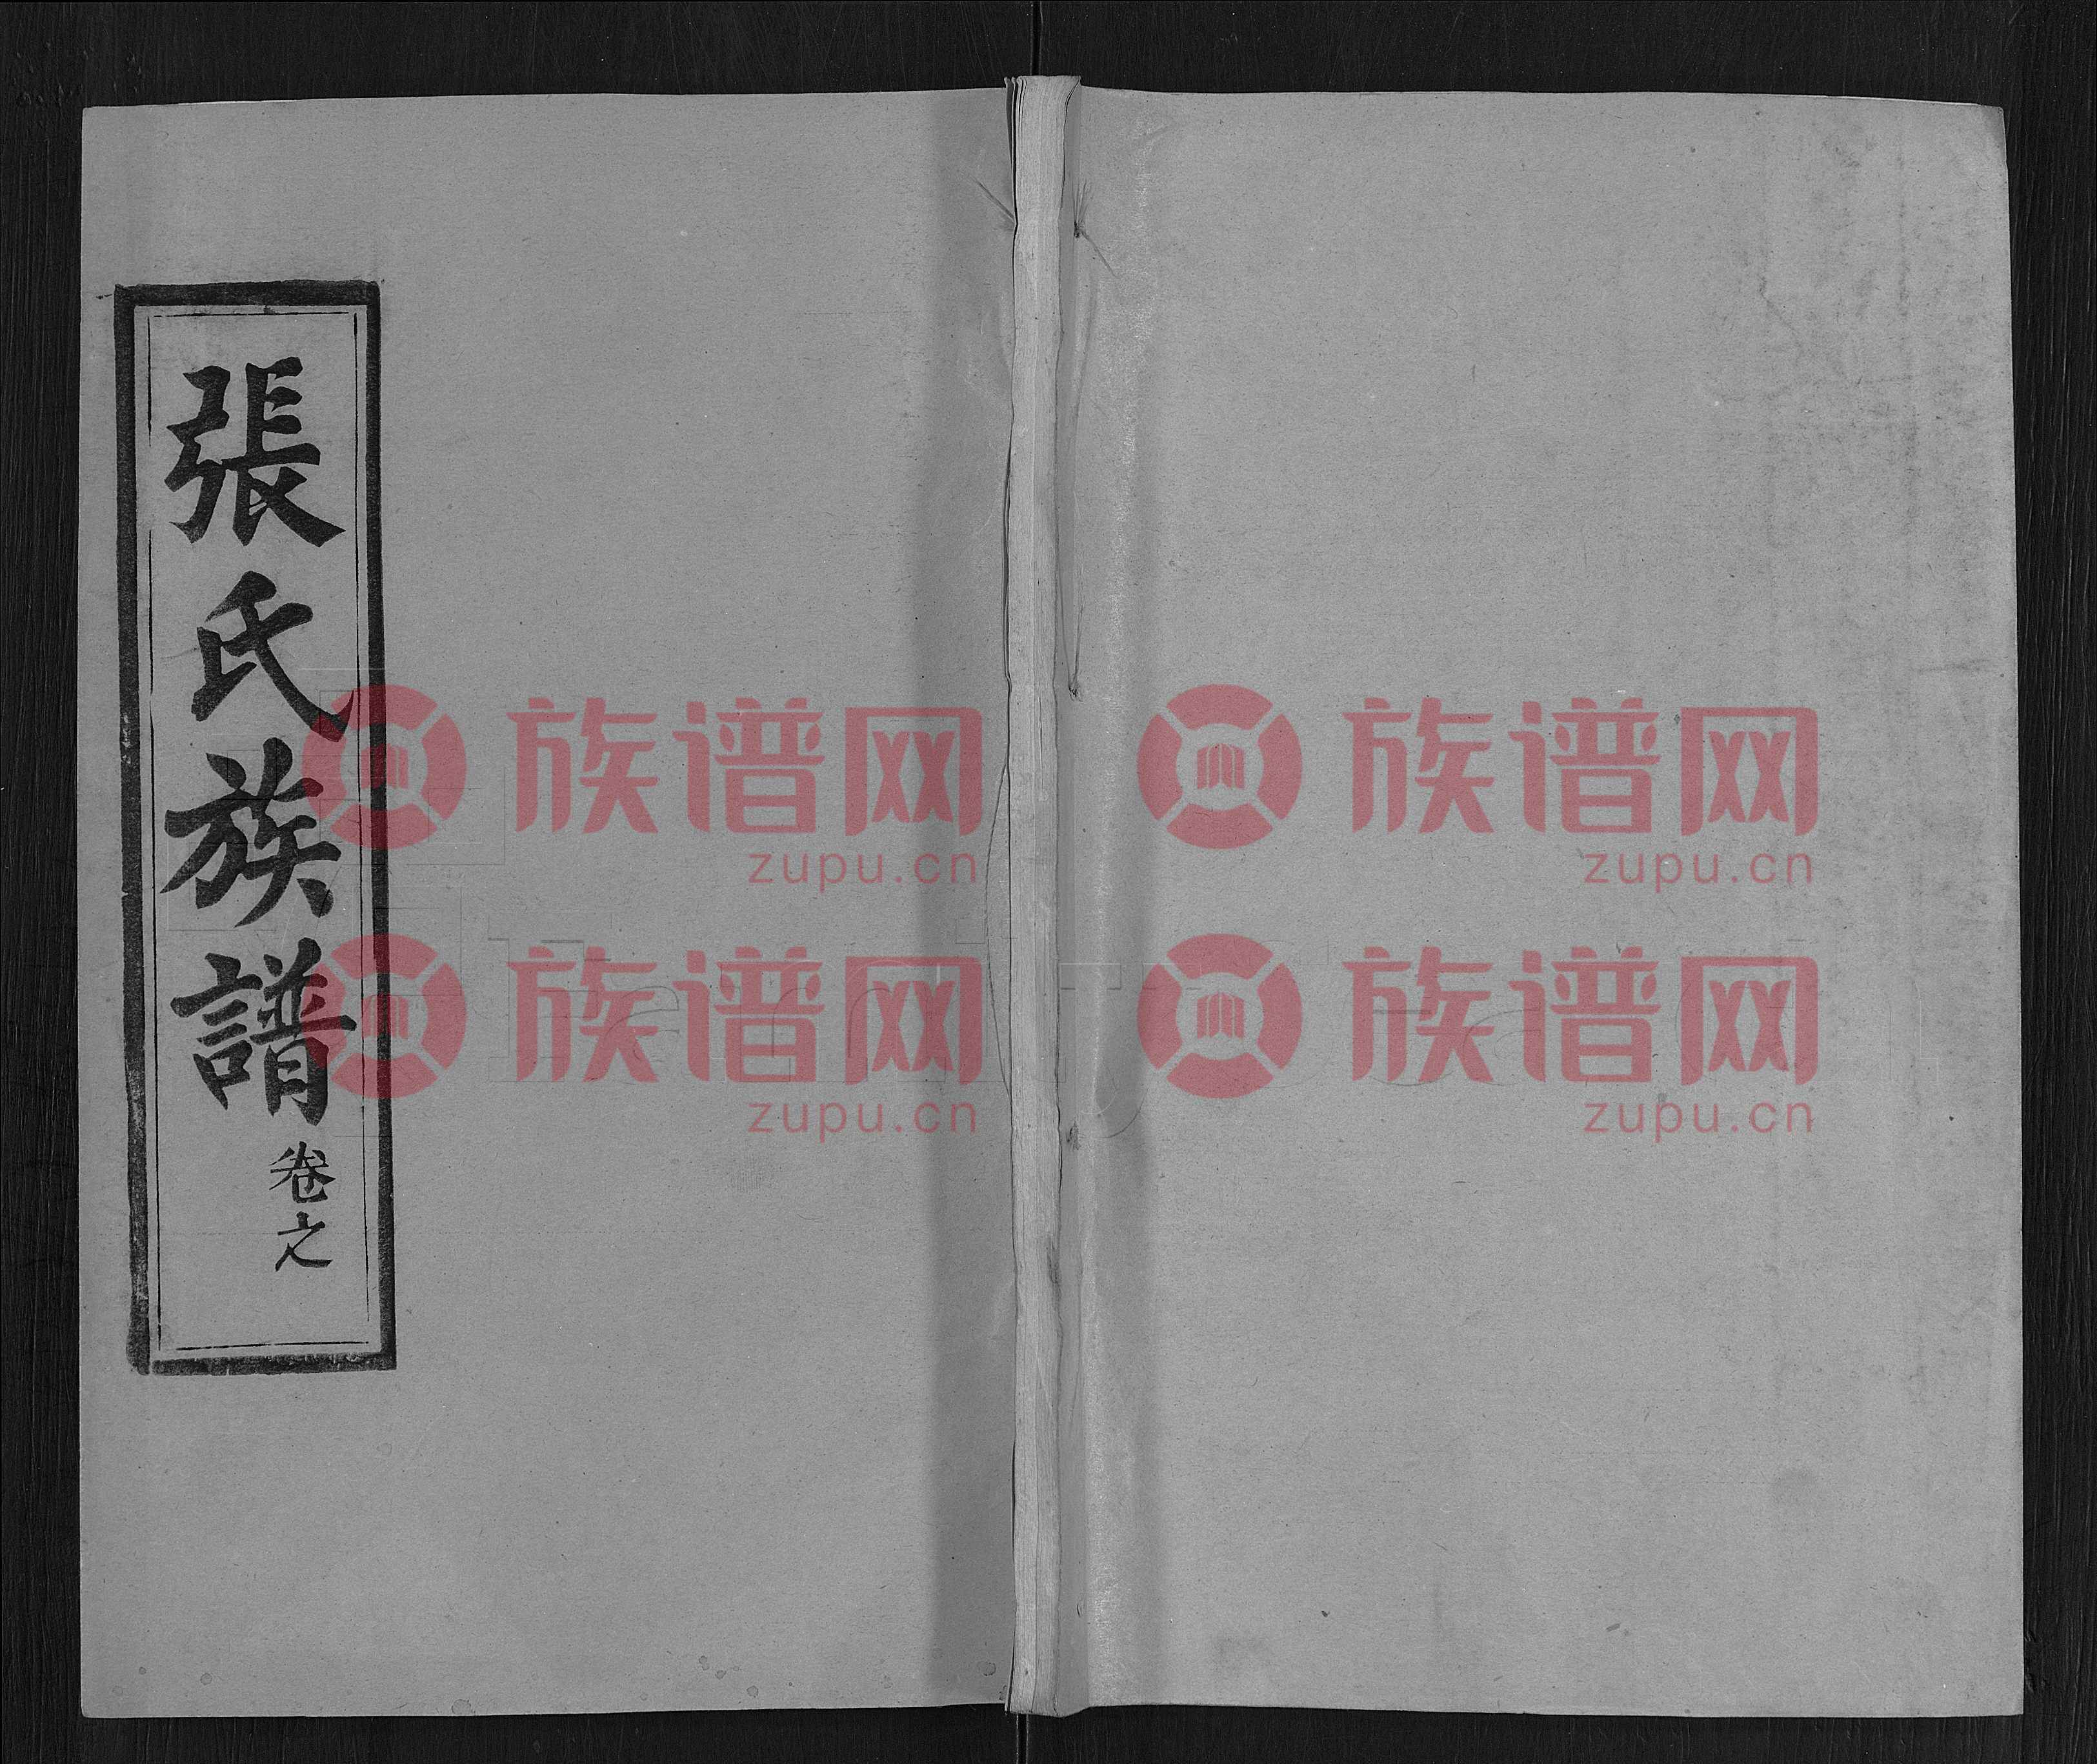 張氏族譜
卷之
族谱网
zupu.cn
族谱网
zupu.cn
族谱网
zupu.cn
族谱网
zupu.cn